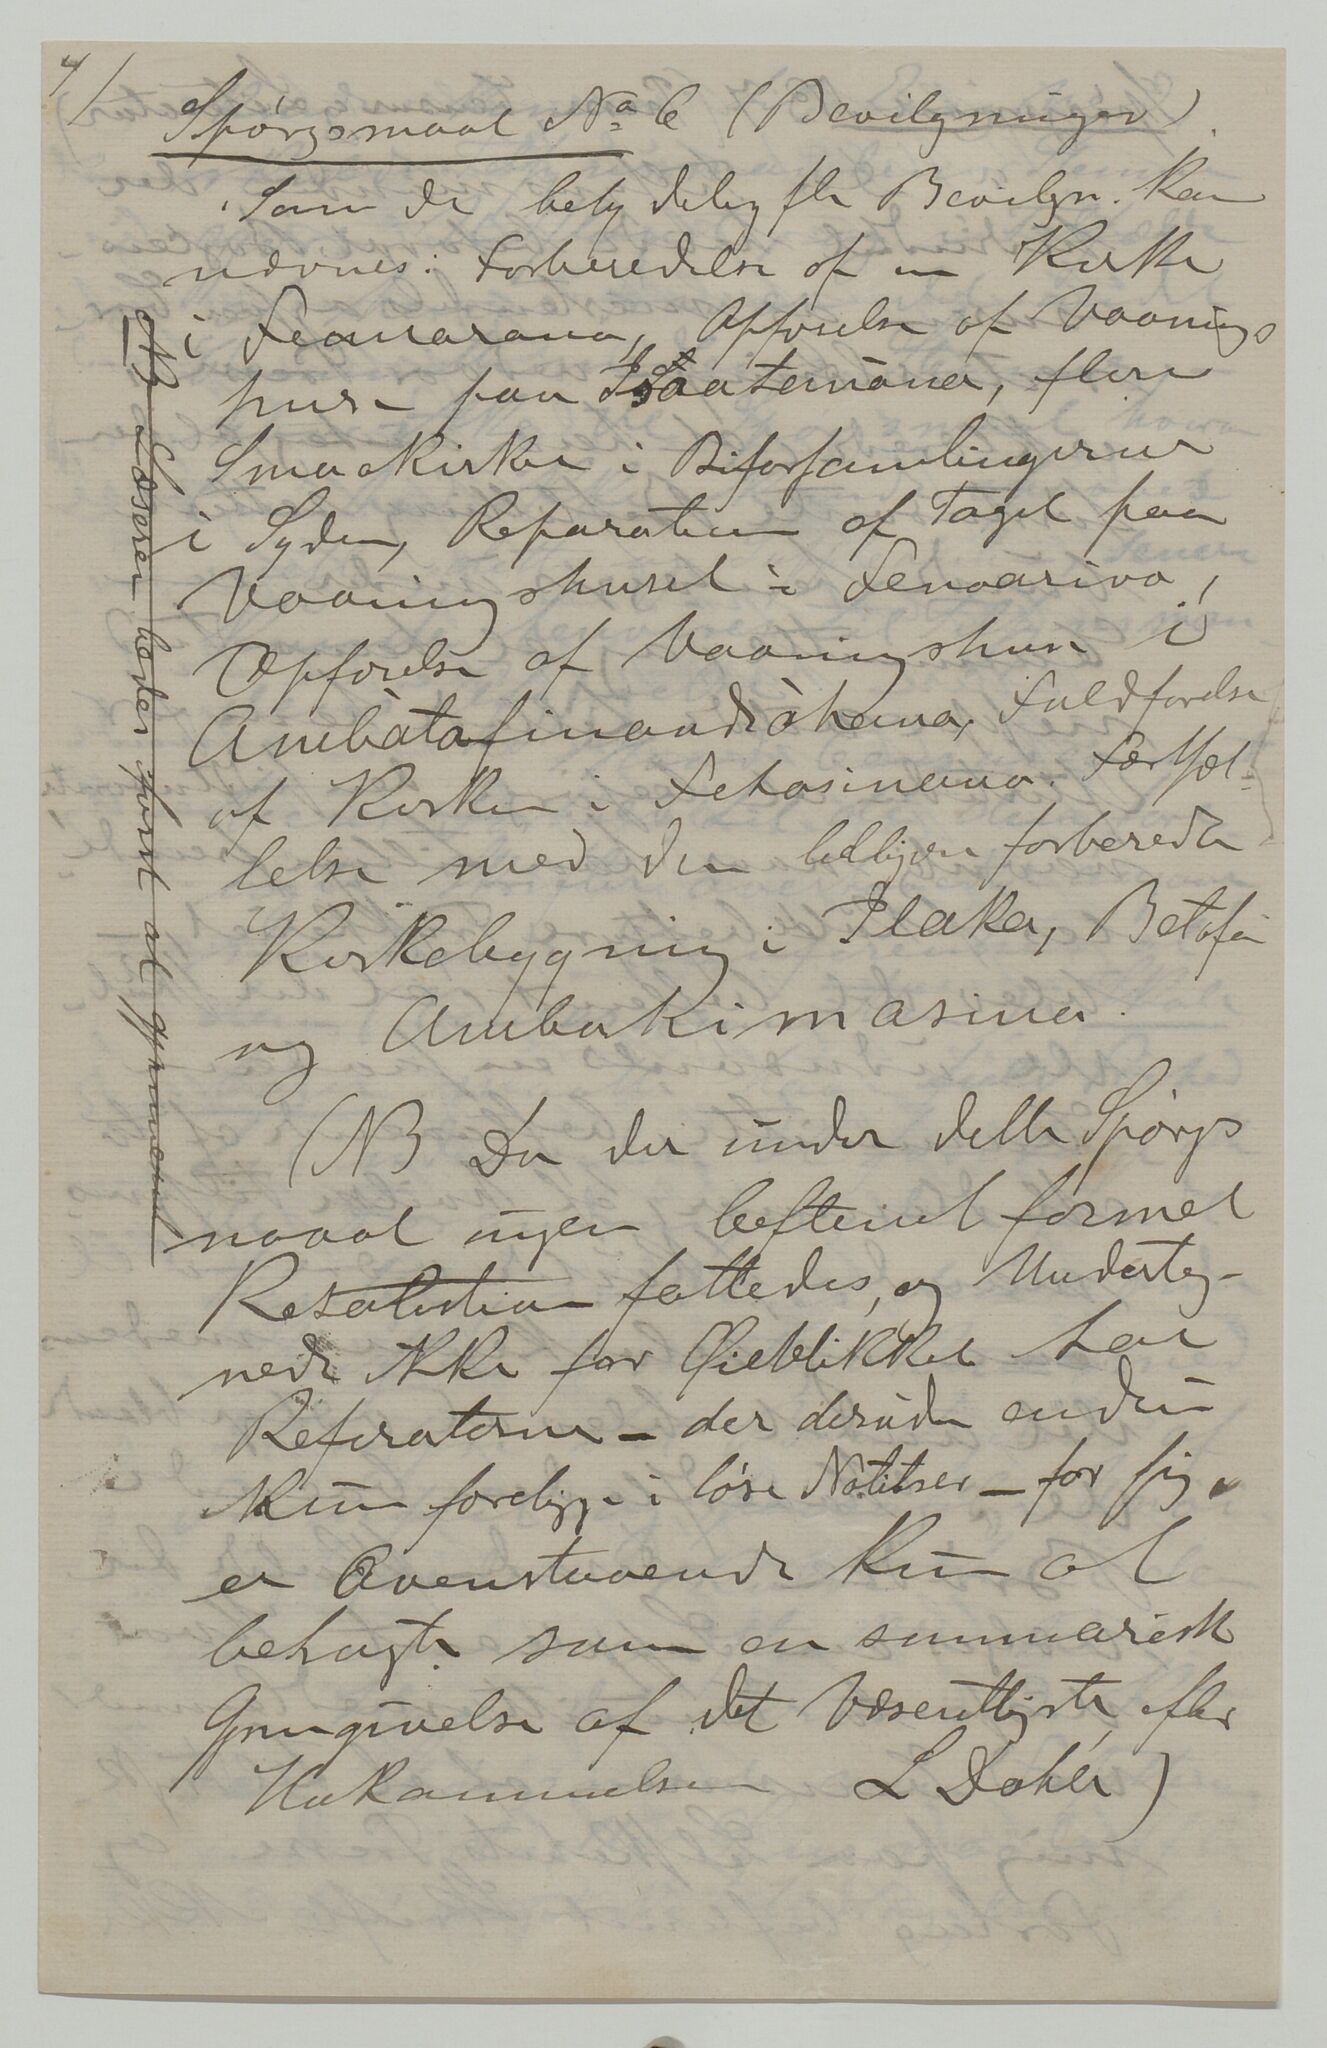 7/
Spørgsmaal No 6 (Bevilgninger).
Som de betydeligste Bevilgn. kan
nævnes: Forberedelse af en Kirke
i Fianarana, Opførelse af Vaanings
huse paa Isaatenana, flere
Smaakirker i Biforsamlingerne
i Syden, Reparation af Taget paa
Vaaningshuset i Fenoarivo,
Opførelse af Vaaningshus i
Ambatofinandrahana, Fuldførelse
af Kirken i Fehasinana. Fortsæt-
telse med den allerede forberedte
Kirkebygning i Ilaka, Betafo
og Ambohimasina.
(NB Da der under dette Spørgs
maal ingen bestemt formel
Resolution fattedes, og Underteg-
nede ikke for Øieblikket har
Referaterne – der desuden endnu
kun foreligge i løse Notitser – for sig,
er Ovenstaaende kun at
betragte som en summarisk
Gjengivelse af det Væsentligste, efter
Hukommelsen L Dahle)
NB Læseren bedes først at gjennemse